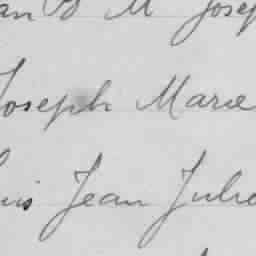 an B M Josep
Joseph Marie
uis Jean Julie